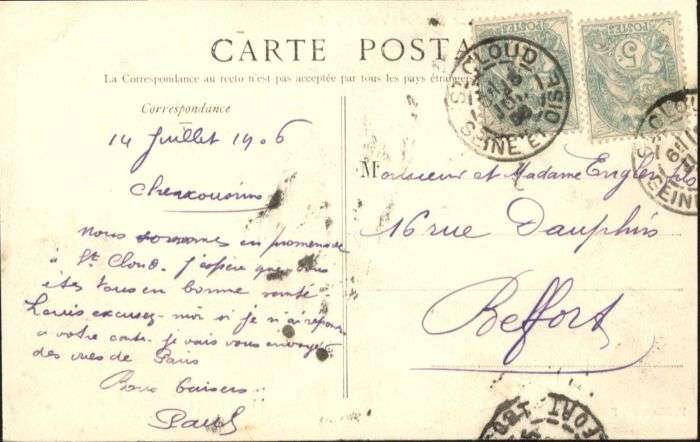 CARTE POSTA
La Correspondance au recto n'est pas acceptée par tous les pays étrangers
Correspondance
14 Juillet 1906
Chers cousins
Nous sommes en promenade
à St Cloud. J'espère que vous
êtes tous en bonne santé.
Louis excusez-moi si je n'ai répondu
à votre carte. je vais vous envoyer
des vues de Paris
Bons baisers
Paul
Monsieur et Madame Engler fils
16 rue Dauphin
Belfort
ST CLOUD
SEINE ET OISE
5
ST CLOUD
SEINE
FORT